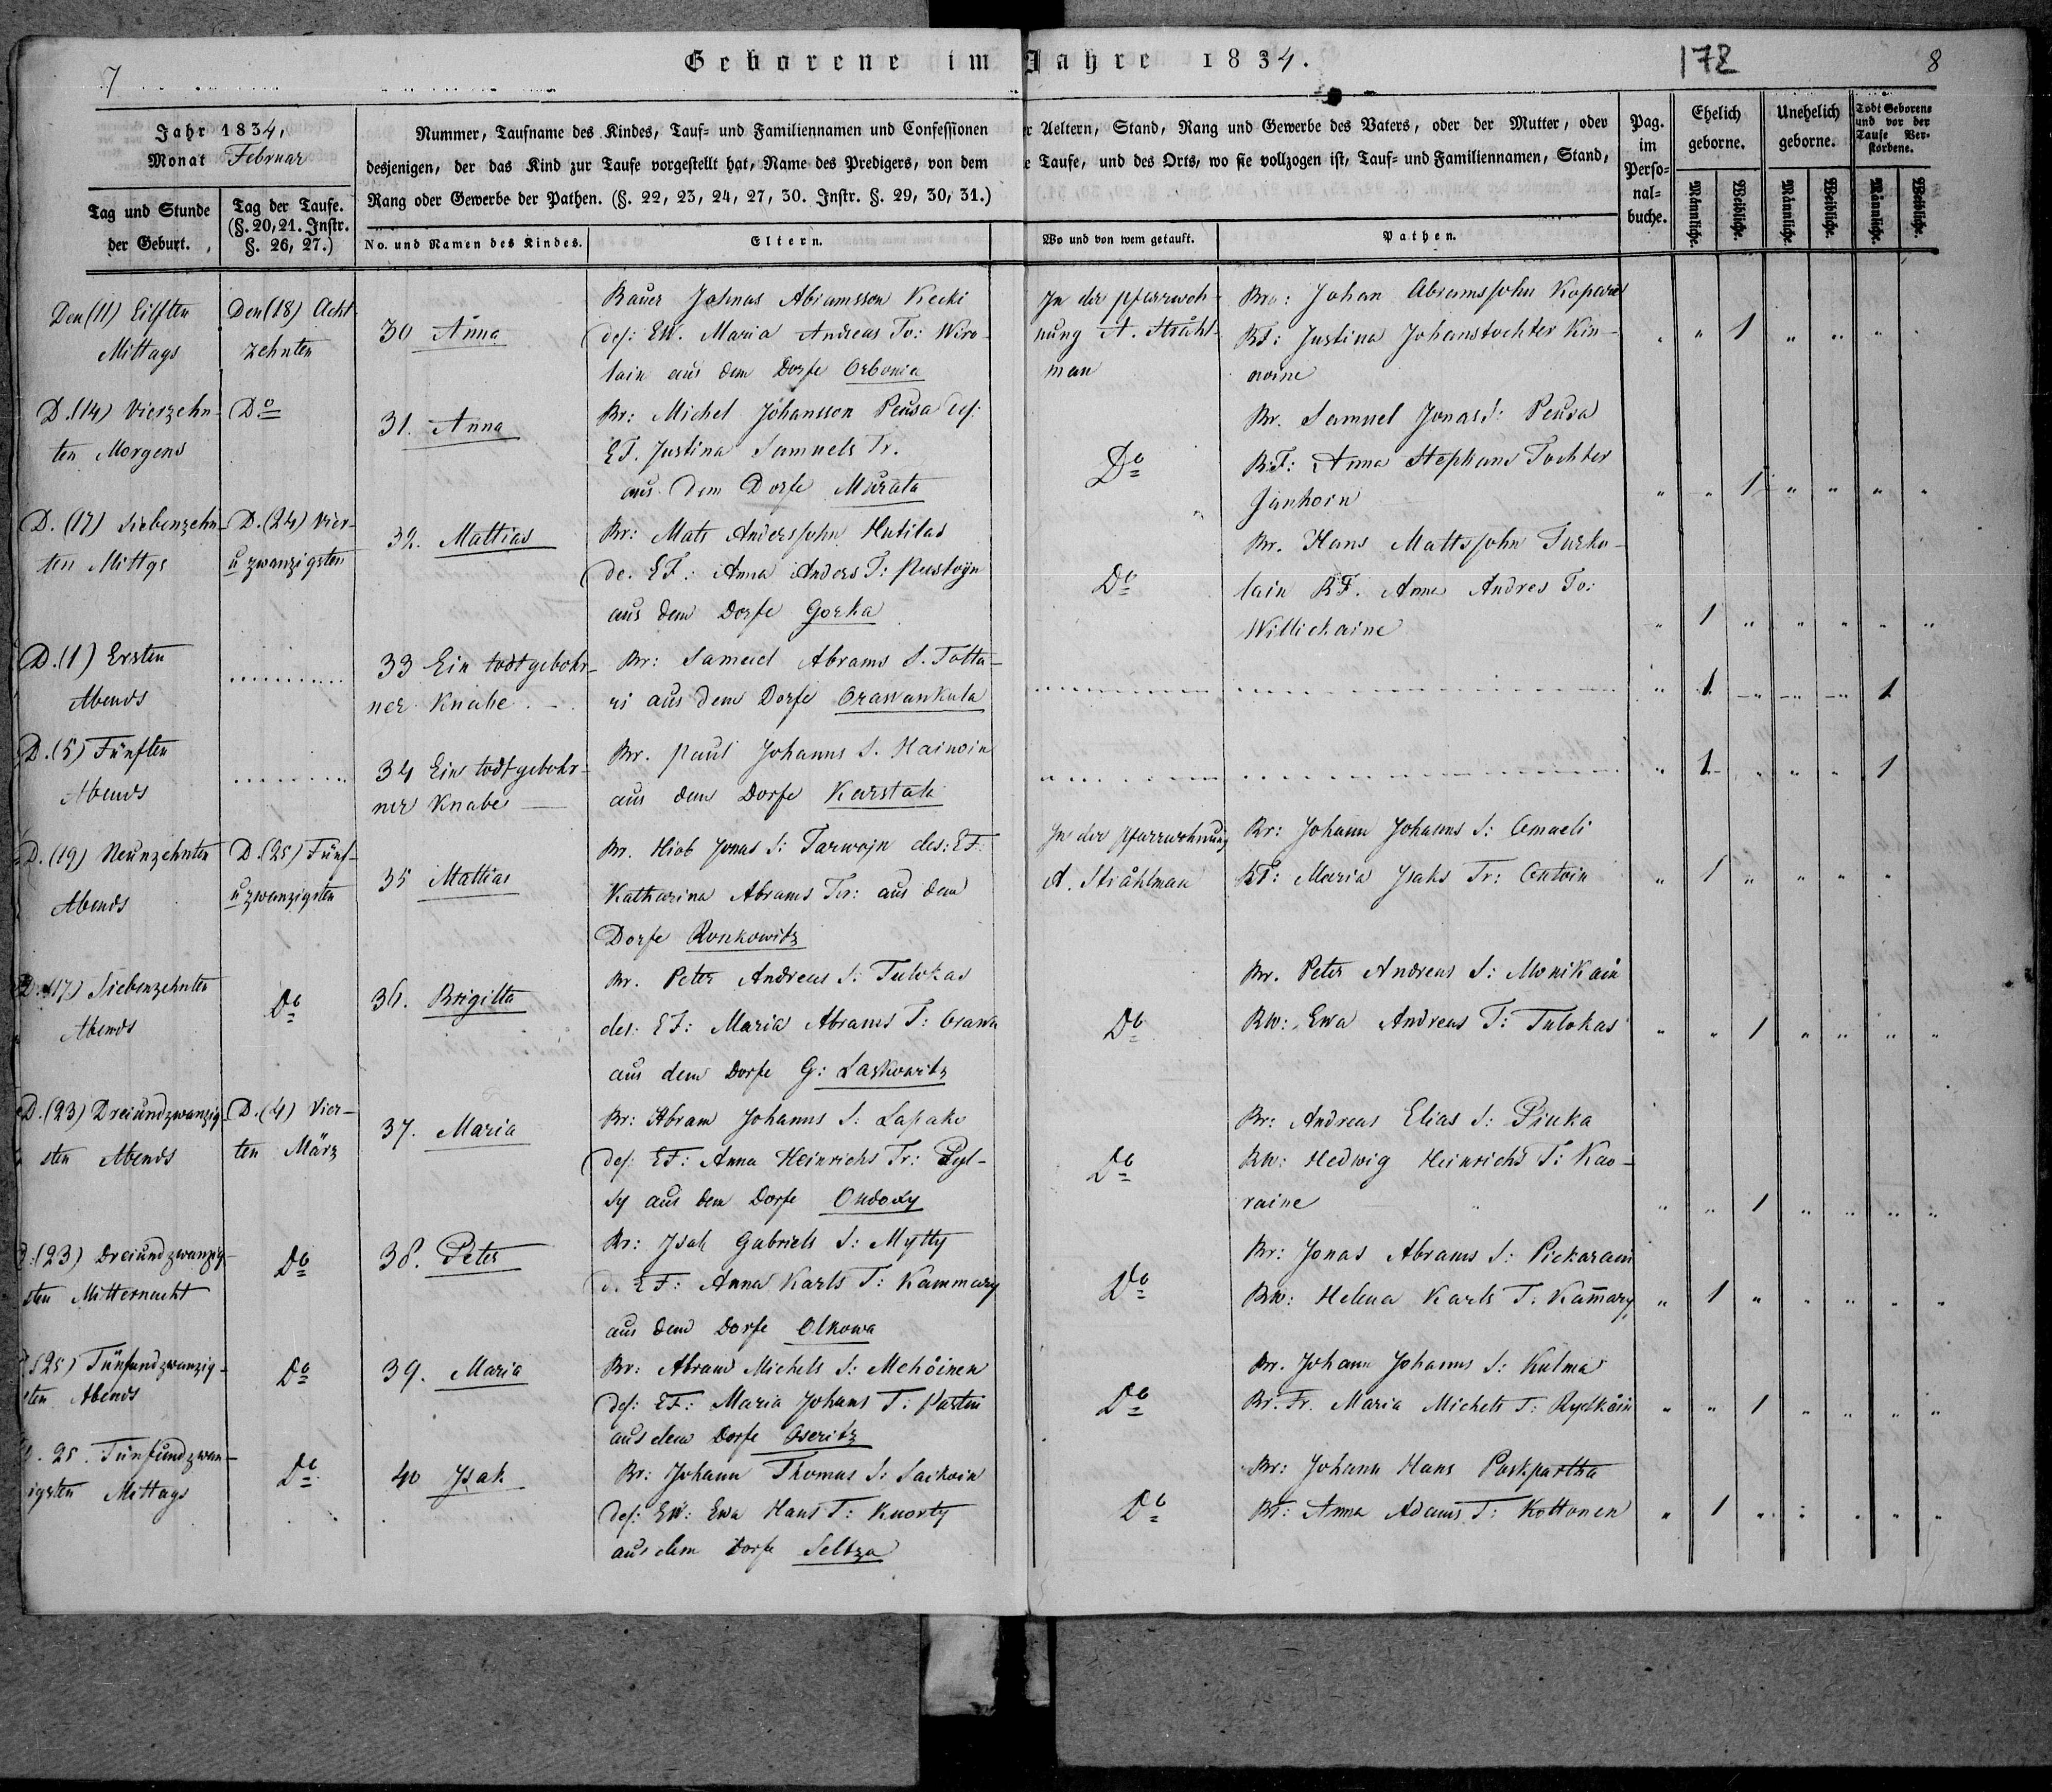 7
Geborene im Jahre 1834.
172
8
Jahr 1834,
Monat Februar
Nummer, Taufname des Kindes, Tauf- und Familiennamen und Confessionen
desjenigen, der das Kind zur Taufe vorgestellt hat, Name des Predigers, von dem
Rang oder Gewerbe der Pathen. (§. 22, 23, 24, 27, 30. Instr. §. 29, 30, 31.)
r Aeltern, Stand, Rang und Gewerbe des Vaters, oder der Mutter, oder
e Taufe, und des Orts, wo sie vollzogen ist, Tauf- und Familiennamen, Stand,
Pag.
im
Perso-
nal-
buche.
Ehelich
geborne.
Unehelich
geborne.
Todt Geborene
und vor der
Taufe Ver-
storbene.
Tag und Stunde
der Geburt.
Tag der Taufe.
(§. 20, 21. Instr.
§. 26, 27.)
No. und Namen des Kindes.
Eltern.
Wo und von wem getauft.
Pathen.
Männliche.
Weibliche.
Männliche.
Weibliche.
Männliche.
Weibliche.
Den (11) Eilften
Mittags
Den (18) Acht
zehnten
30 Anna
Bauer Johnas Abramsson Kecki
des: EW. Maria Andreas To: Wiro-
lain aus dem Dorfe Orbonia
In der Pfarrwoh-
nung A. Stråhl-
man
Br: Johan Abramssohn Kopare
BT: Justina Johanstochter Kin-
noine
" " 1 " " "
D. (14) Vierzehn-
ten Morgens
Do
31. Anna
Br: Michel Johansson Peusa des:
EF. Justina Samuels Tr.
aus dem Dorfe Murata
Do
Br. Samuel Jonas S: Peusa
BT: Anna Stephans Tochter
Janhoin
" " 1 " " " "
D. (17) Siebenzehn-
ten Mittgs
D. (24) Vier-
u zwanzigsten
32. Mattias
Br: Mats Anderssohn Hutilas
de. EF: Anna Anders T: Pustojn
aus dem Dorfe Gorka
Do
Br. Hans Mattssohn Turko-
lain BF. Anna Andres To:
Willichaine
" 1 " " " " "
D. (1) Ersten
Abends
33 Ein todtgebohr-
ner Knabe.
Br: Samuel Abrams S. Totta-
ri aus dem Dorfe Orawankula
" 1 " " " 1
D. (5) Fünften
Abends
34 Ein todtgebohr-
ner Knabe
Br. Paul Johanns S. Hainoin
aus dem Dorfe Karstala
" 1 " " " 1
D. (19) Neunzehnten
Abends
D. (25) Fünf-
u zwanzigsten
35 Mattias
Br. Hiob Jonas S: Tarwojn des: EF:
Katharina Abrams Tr: aus dem
Dorfe Ronkowitz
In der Pfarrwohnung
A. Stråhlman
Br: Johann Johanns S: Omaeli
BT: Maria Isaks Tr: Ontoin
" 1 " " " "
D. (17) Siebenzehnten
Abends
Do
36. Brigitta
Br. Peter Andreas S: Tulokas
des: EF: Maria Abrams T: Orawa
aus dem Dorfe G: Laskowitz
Do
Br. Peter Andreas S: Monikain
BW: Ewa Andreas T: Tulokas
" " 1 " " " "
D. (23) Dreiundzwanzig-
sten Abends
D. (4) Vier-
ten März
37. Maria
Br: Abram Johanns S: Lapake
des: EF: Anna Heinrichs Tr: Pyl-
sy aus dem Dorfe Ondoly
Do
Br: Andreas Elias S: Piuka
BW: Hedwig Heinrichs T: Kao-
raine
" " 1 " " " "
D. (23) Dreiundzwanzig-
sten Mitternacht
Do
38. Peter
Br: Isak Gabriels S: Mytty
d. EF: Anna Karls T: Kammary
aus dem Dorfe Olkowa
Do
Br: Jonas Abrams S: Pickarain
BW: Helena Karls T. Kam̄ary
" 1 " " " " "
(25) Fünfundzwanzig-
sten Abends
Do
39. Maria
Br: Abram Michels S: Mehöinen
des: EF: Maria Johans T: Partui
aus dem Dorfe Oseritz
Do
Br. Johann Johanns S: Kulma
Br. Fr. Maria Michels T: Rylkäin
" " 1 " " " "
25. Fünfundzwan-
igsten Mittags
Do
40 Isak
Br: Johann Thomas S: Saikoin
des: EW: Ewa Hans T: Kuorty
aus dem Dorfe Seltza
Do
Br: Johann Hans Paskpartha
BT: Anna Adams T: Kottonen
" 1 " " " " "